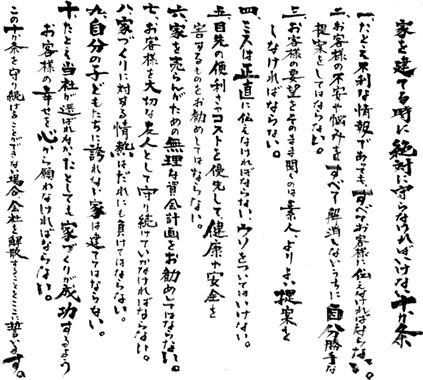 家を建てる時に絶対に守らなければいけない十か条
一、たとえ不利な情報であっても、すべてお客様に伝えなければならない。
二、お客様の不安や悩みをすべて解消しないうちに、自分勝手な
提案をしてはならない。
三、お客様の要望をそのまま聞くのは素人、よりよい提案を
しなければならない。
四、ミスは正直に伝えなければならない、ウソをついてはいけない。
五、目先の便利さやコストを優先して、健康や安全を
害するものをお勧めしてはならない。
六、家を売らんための無理な資金計画をお勧めしてはならない。
七、お客様を大切な友人として守り続けていかなければならない。
八、家づくりに対する情熱はだれにも負けてはならない。
九、自分の子どもたちに誇れない家は建ててはならない。
十、たとえ当社が選ばれなかったとしても家づくりが成功するよう
お客様の幸せを心から願わなければならない。
この十か条を守り続けることができない場合、会社を解散することをここに誓います。